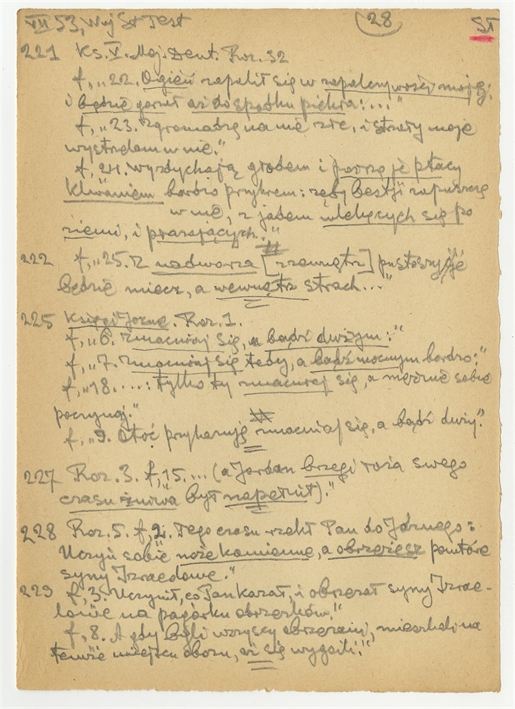 VII 53, Wyj St Test
28
ST
221 Ks. V. Moj. Deut. Roz. 32
f, „22. Ogień zapalił się w zapalczywości mojej;
i będzie gorzał aż do spodku piekła:...."
f, „23. Zgromadzę na nie złe, i strzały moje
wystrzelam w nie."
f, 24. wyzdychają głodem i porzą je ptacy
kłwaniem bardzo przykrem: zęby bestji zapuszczę
w nie, z jadem wlekących się po
ziemi, i prazających."
222 f, „25. Z nadworza [z zewnątrz] pustoszyć je
będzie miecz, a wewnątrz strach..."
225 Księgi Jozue. Roz. 1.
f, „6. Zmacniaj się, a bądź dużym:"
f, „7. Zmacniaj się tedy, a bądź mocnym bardzo;"
f, „18. ....: tylko ty zmacniaj się, a mężnie sobie
poczynaj."
f, „9. Otoć przykazuję zmacniaj się, a bądź duży."
227 Roz. 3. f, 15. ... (a Jordan brzegi łoża swego
czasu żniwa był napełnił)."
228 Roz. 5. f, 2. Tego czasu rzekł Pan do Józuego:
Uczyń sobie noże kamienne, a obrzeżesz powtóre
syny Izraelowe."
229 f, 3. Uczynił, co Pan kazał, i obrzezał syny Izrae-
lowe na pagórku obrzezków."
f, 8. A gdy byli wszyscy obrzezani, mieszkali na
temże miejscu obozu, aż się wygoili."